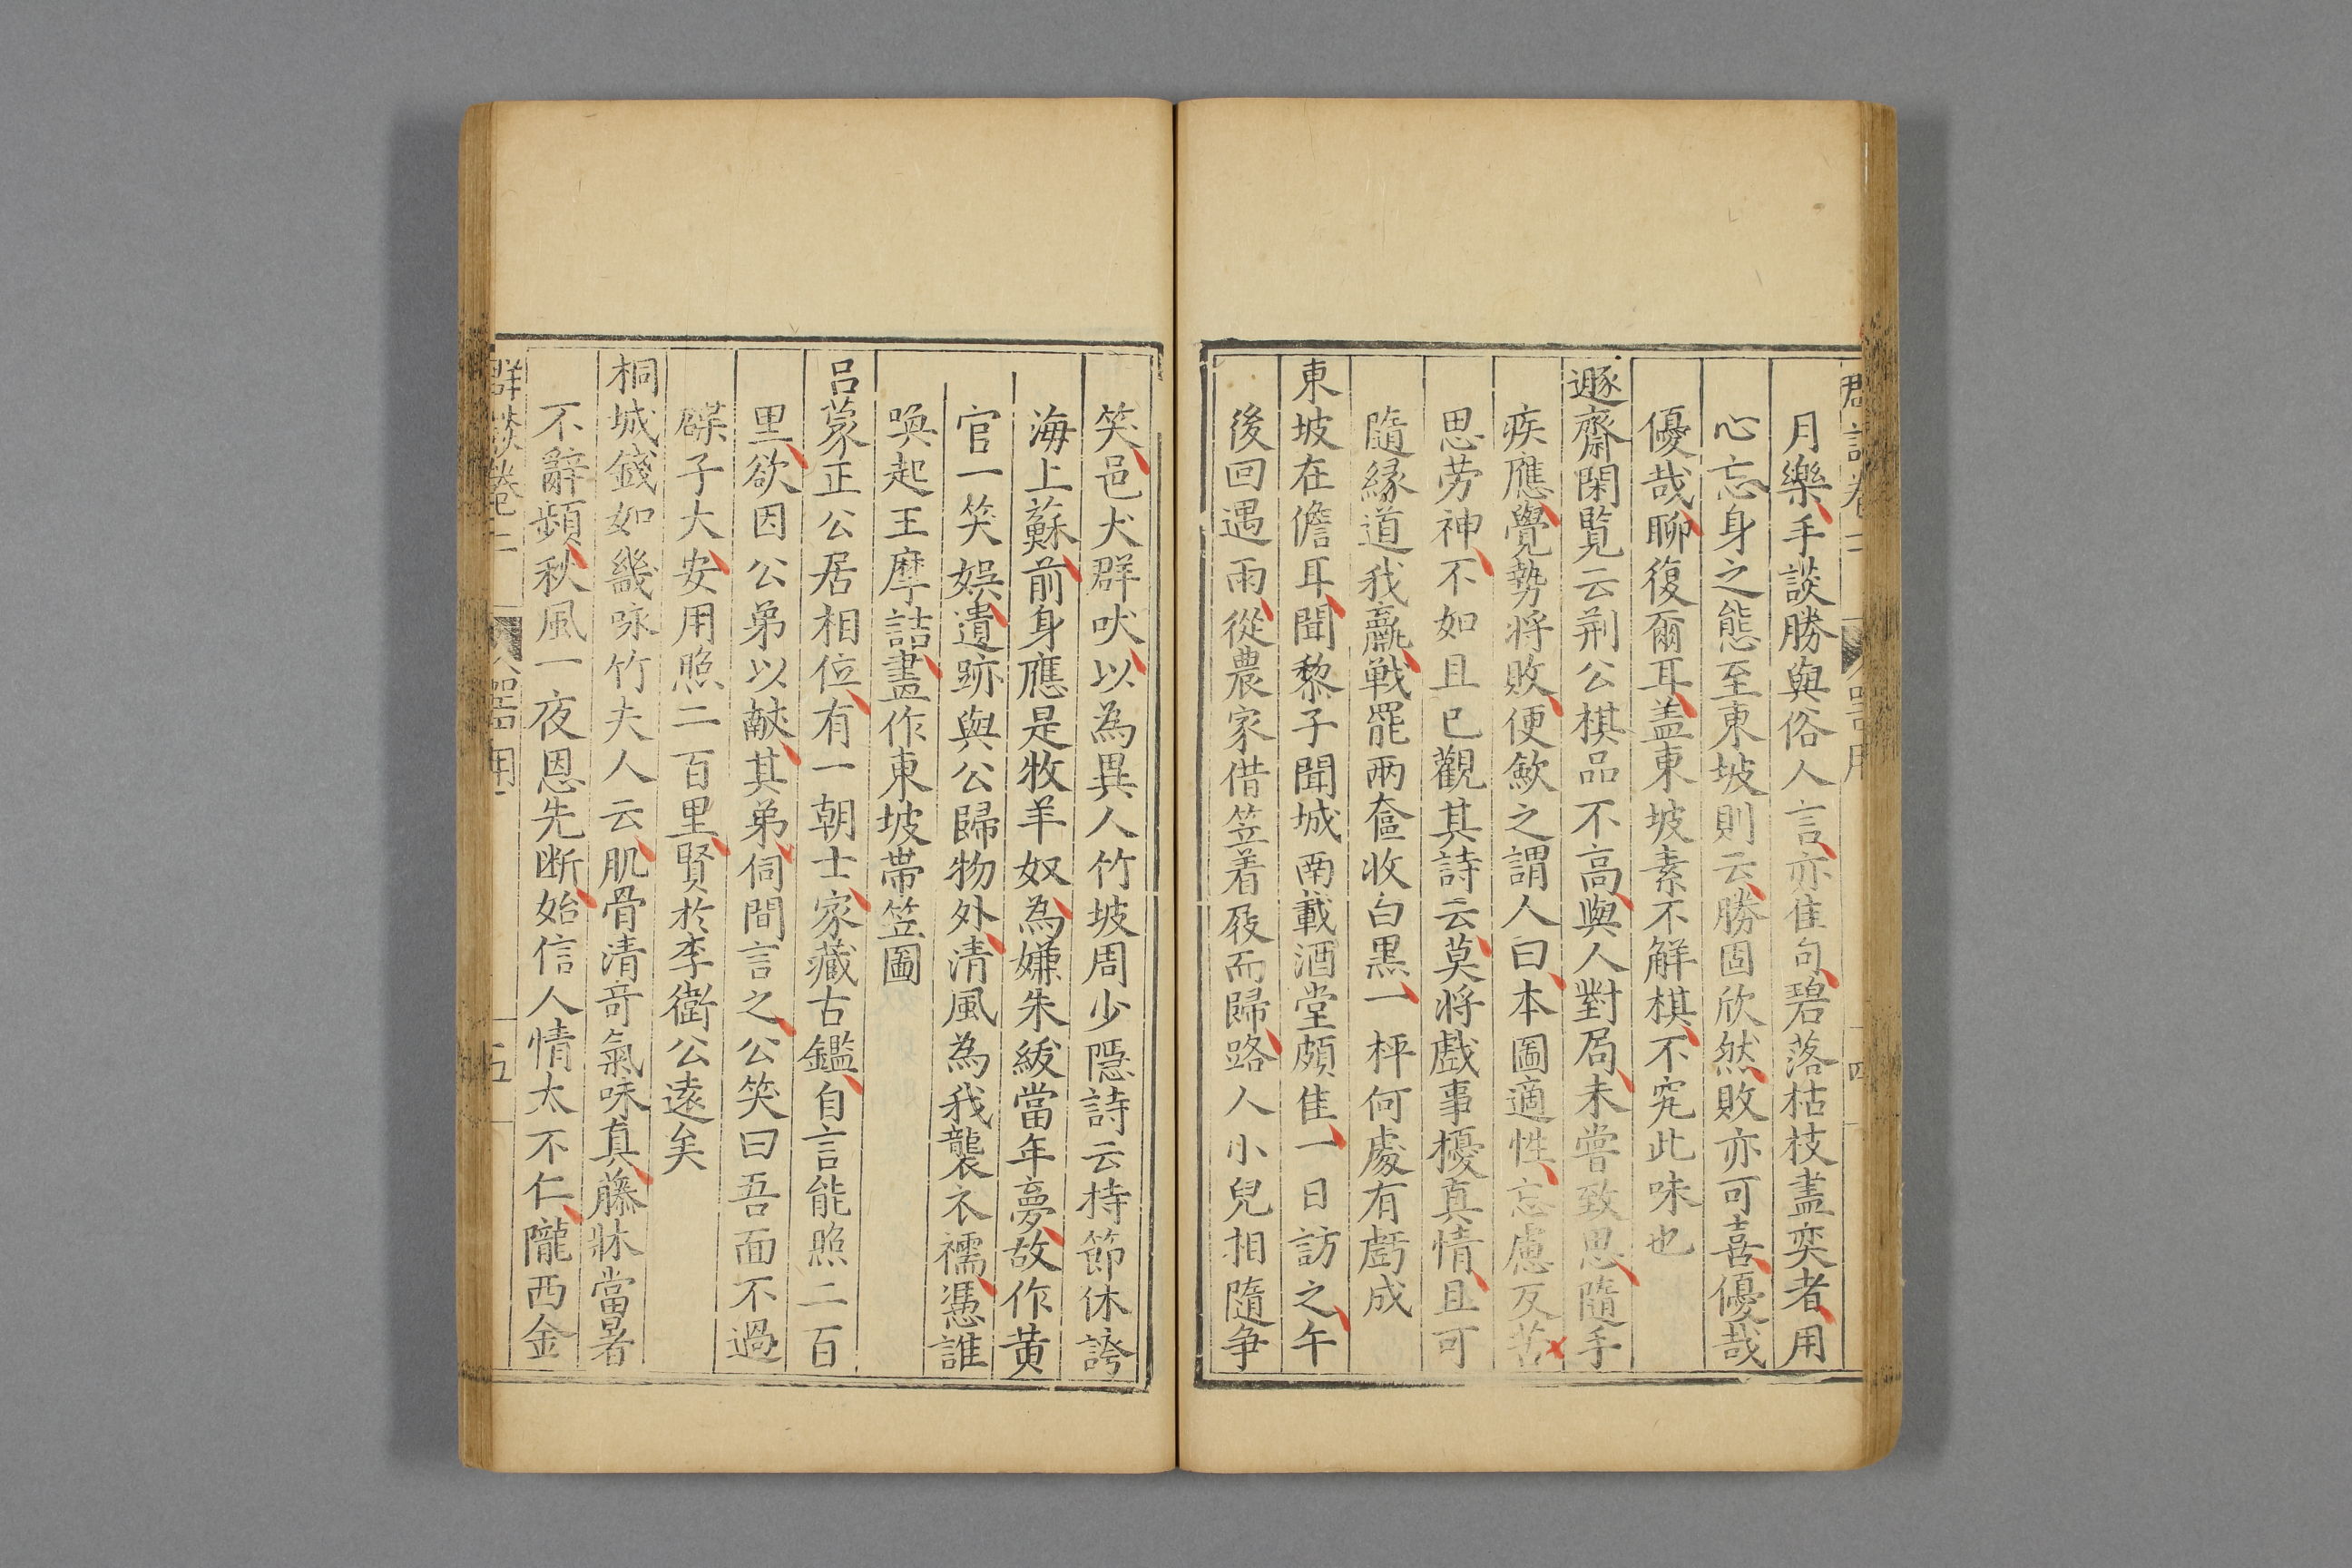 月樂手談勝與俗人言亦隹句碧落枯枝盡奕者用
心忘身之態至東坡則云勝固欣然敗亦可喜優哉
優哉聊復爾耳盖東坡素不解棋不究此味也
遯齋閑覧云荆公棋品不高與人對局未嘗致思隨手
疾應覺勢将敗便斂之謂人曰本圖適性忘慮反苦
思劳神不如且已觀其詩云莫将戲事擾真情且可
隨縁道我贏戰罷兩奩收白黒一枰何處有虧成
東坡在儋耳聞黎子聞城南載酒堂頗隹一日訪之午
後回遇雨從農家借笠着屐而歸路人小兒相隨争
笑邑犬群吠以為異人竹坡周少隱詩云持節休誇
海上蘇前身應是牧羊奴為嫌朱紱當年夣故作黄
官一笑娯遺跡與公歸物外清風為我襲衣襦憑誰
喚起王摩詰畫作東坡帶笠圖
吕䝉正公居相位有一朝士家藏古鑑自言能照二百
里欲因公弟以献其弟伺間言之公笑曰吾面不過
楪子大安用照二百里賢於李衛公遠矣
桐城錢如畿咏竹夫人云肌骨清竒氣味真藤牀當暑
不辭頻秋風一夜恩先断始信人情太不仁隴西金
群談卷二
器用
五